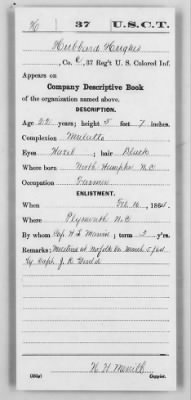 H 37 U.S.C.T.
Hubbard Hughes
, Co. C, 37 Reg't U. S. Colored Inf.
Appears on
Company Descriptive Book
of the organization named above.
DESCRIPTION.
Age 22 years; height 5 feet 7 inches.
Complexion Mulatto
Eyes Hazel ; hair Black
Where born North Hampton N.C
Occupation Farmer
ENLISTMENT.
When Feb 16, 1864.
Where Plymouth N.C
By whom Cap. H. L. ; term 3 y'rs.
Remarks: Mustered at Norfolk Va March 5/64
by Capt. J. R.
Copyist.